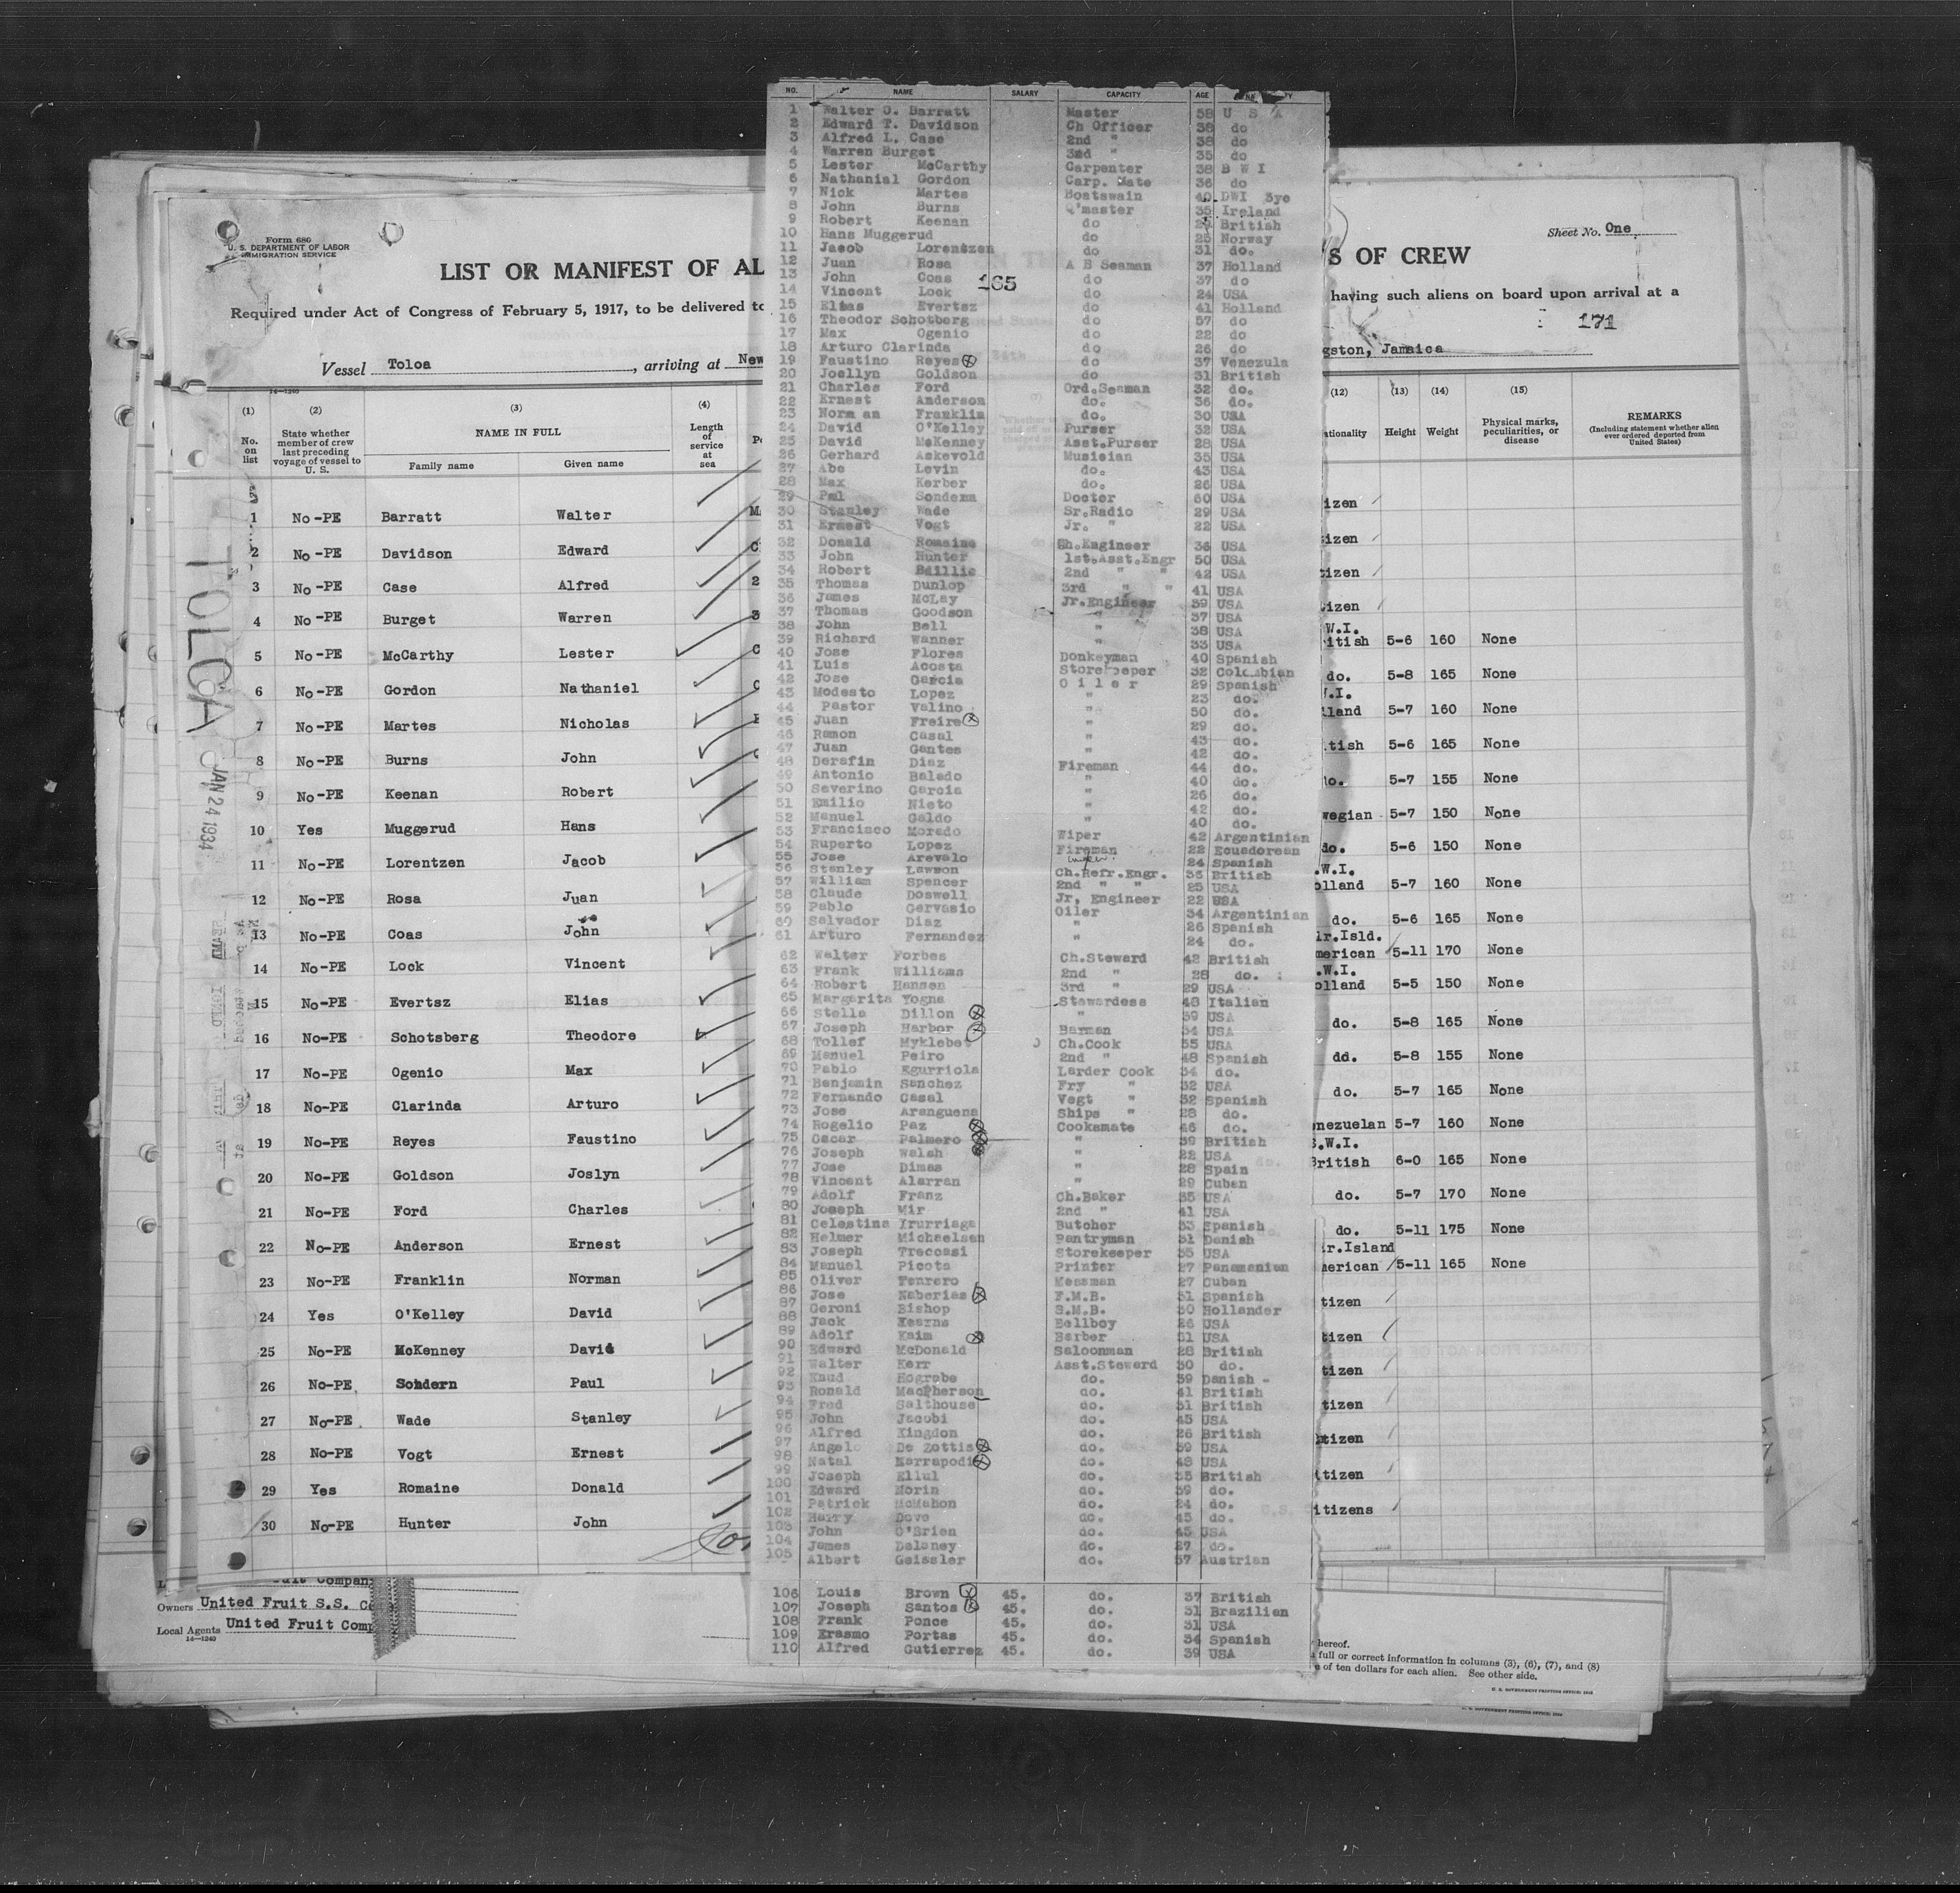 Form 680
U. S. DEPARTMENT OF LABOR
IMMIGRATION SERVICE
LIST OR MANIFEST OF AL
Required under Act of Congress of February 5, 1917, to be delivered to
Vessel Toloa , arriving at New
(1) (2) (3) (4)
No. on list
State whether member of crew last preceding voyage of vessel to U. S.
NAME IN FULL
Family name Given name
Length of service at sea
1 No-PE Barratt Walter
2 No-PE Davidson Edward
3 No-PE Case Alfred
4 No-PE Burget Warren
5 No-PE McCarthy Lester
6 No-PE Gordon Nathaniel
7 No-PE Martes Nicholas
8 No-PE Burns John
9 No-PE Keenan Robert
10 Yes Muggerud Hans
11 No-PE Lorentzen Jacob
12 No-PE Rosa Juan
13 No-PE Coas John
14 No-PE Lock Vincent
15 No-PE Evertsz Elias
16 No-PE Schotsberg Theodore
17 No-PE Ogenio Max
18 No-PE Clarinda Arturo
19 No-PE Reyes Faustino
20 No-PE Goldson Joslyn
21 No-PE Ford Charles
22 No-PE Anderson Ernest
23 No-PE Franklin Norman
24 Yes O'Kelley David
25 No-PE McKenney David
26 No-PE Sondern Paul
27 No-PE Wade Stanley
28 No-PE Vogt Ernest
29 Yes Romaine Donald
30 No-PE Hunter John
TOLOA
JAN 24 1934
Owners United Fruit S.S. Co
Local Agents United Fruit Comp
14-1240
NO. NAME SALARY CAPACITY AGE
1 Walter O. Barratt Master 58 U S A
2 Edward T. Davidson Ch Officer 38 do
3 Alfred L. Case 2nd " 38 do
4 Warren Burget 3rd " 35 do
5 Lester McCarthy Carpenter 38 B W I
6 Nathanial Gordon Carp. Mate 36 do
7 Nick Martes Boatswain 40 DWI
8 John Burns Q'master 35 Ireland
9 Robert Keenan do British
10 Hans Muggerud do 25 Norway
11 Jacob Lorentzen do 31 do.
12 Juan Rosa A B Seaman 37 Holland
13 John Coas 165 do 37 do
14 Vincent Lock do 24 USA
15 Elias Evertsz do 41 Holland
16 Theodor Schotberg do 57 do
17 Max Ogenio do 22 do
18 Arturo Clarinda do 26 do
19 Faustino Reyes do 37 Venezula
20 Joellyn Goldson do 31 British
21 Charles Ford Ord.Seaman 32 do.
22 Ernest Anderson do. 36 do.
23 Norm an Franklin do. 30 USA
24 David O'Kelley Purser 32 USA
25 David McKenney Asst.Purser 28 USA
26 Gerhard Askevold Musician 35 USA
27 Abe Levin do. 43 USA
28 Max Kerber do. 26 USA
29 Pal Sondern Doctor 60 USA
30 Stanley Wade Sr.Radio 29 USA
31 Ernest Vogt Jr. " 22 USA
32 Donald Romaine Ch.Engineer 36 USA
33 John Hunter 1st.Asst.Engr 50 USA
34 Robert Baillie 2nd " " 42 USA
35 Thomas Dunlop 3rd " " 41 USA
36 James McLay Jr.Engineer 39 USA
37 Thomas Goodson " 37 USA
38 John Bell " 38 USA
39 Richard Wanner " 33 USA
40 Jose Flores Donkeyman 40 Spanish
41 Luis Acosta Storekeeper 32 Colombian
42 Jose Garcia Oiler 29 Spanish
43 Modesto Lopez " 23 do.
44 Pastor Valino " 50 do.
45 Juan Freire " 29 do.
46 Ramon Casal " 43 do.
47 Juan Gantes " 42 do.
48 Derafin Diaz Fireman 44 do.
49 Antonio Balado " 40 do.
50 Severino Garcia " 26 do.
51 Emilio Nieto " 42 do.
52 Manuel Galdo " 40 do.
53 Francisco Morado Wiper 42 Argentinian
54 Ruperto Lopez Fireman 22 Ecuadorean
55 Jose Arevalo 24 Spanish
56 Stanley Lawson Ch.Refr.Engr. 33 British
57 William Spencer 2nd " " 25 USA
58 Claude Doswell Jr, Engineer 22 USA
59 Pablo Gervasio Oiler 34 Argentinian
60 Salvador Diaz " 26 Spanish
61 Arturo Fernandez " 24 do.
62 Walter Forbes Ch.Steward 42 British
63 Frank Williams 2nd " 28 do.
64 Robert Hansen 3rd " 29 USA
65 Margarita Yogna Stewardess 48 Italian
66 Stella Dillon " 39 USA
67 Joseph Harbor Barman 34 USA
68 Tollef Myklebet Ch.Cook 55 USA
69 Manuel Peiro 2nd " 48 Spanish
70 Pablo Egurriola Larder Cook 34 do.
71 Benjamin Sanchez Fry " 32 USA
72 Fernando Casal Vegt " 32 Spanish
73 Jose Aranguena Ships " 28 do.
74 Rogelio Paz Cooksmate 46 do.
75 Oscar Palmero " 39 British
76 Joseph Walsh " 22 USA
77 Jose Dimas " 28 Spain
78 Vincent Alarran " 29 Cuban
79 Adolf Franz Ch.Baker 35 USA
80 Joseph Mir 2nd " 41 USA
81 Celestina Irurriaga Butcher 33 Spanish
82 Helmer Michaelsen Pantryman 31 Danish
83 Joseph Treccasi Storekeeper 35 USA
84 Manuel Picota Printer 27 Panamanian
85 Oliver Fenrero Messman 27 Cuban
86 Jose Naberias F.M.B. 31 Spanish
87 Geroni Bishop S.M.B. 30 Hollander
88 Jack Kearns Bellboy 26 USA
89 Adolf Kaim Barber 31 USA
90 Edward McDonald Saloonman 28 British
91 Walter Kerr Asst.Steward 30 do.
92 Knud Hograbe do. 39 Danish
93 Ronald MacPherson do. 41 British
94 Fred Salthouse do. 31 British
95 John Jacobi do. 45 USA
96 Alfred Kingdon do. 26 British
97 Angelo De Zottis do. 39 USA
98 Natal Karrapodi do. 48 USA
99 Joseph Ellul do. 35 British
100 Edward Morin do. 39 do.
101 Patrick McMahon do. 24 do.
102 Harry Dove do. 45 do.
103 John O'Brien do. 45 USA
104 James Delaney do. 27 do.
105 Albert Geissler do. 57 Austrian
106 Louis Brown 45. do. 37 British
107 Joseph Santos 45. do. 31 Brazilian
108 Frank Ponce 45. do. 31 USA
109 Erasmo Portas 45. do. 34 Spanish
110 Alfred Gutierrez 45. do. 39 USA
Sheet No. One
S OF CREW
having such aliens on board upon arrival at a
171
gston, Jamaica
(12) (13) (14) (15)
Height Weight
Physical marks, peculiarities, or disease
REMARKS
(Including statement whether alien ever ordered deported from United States)
izen
izen
izen
izen
W.I.
itish 5-6 160 None
do. 5-8 165 None
.I.
land 5-7 160 None
tish 5-6 165 None
do. 5-7 155 None
wegian 5-7 150 None
do. 5-6 150 None
.W.I.
olland 5-7 160 None
do. 5-6 165 None
ir.Isld.
merican 5-11 170 None
.W.I.
olland 5-5 150 None
do. 5-8 165 None
dd. 5-8 155 None
do. 5-7 165 None
nezuelan 5-7 160 None
B.W.I.
British 6-0 165 None
do. 5-7 170 None
do. 5-11 175 None
ir.Island
merican 5-11 165 None
tizen
tizen
tizen
tizen
tizen
tizen
itizens
hereof.
full or correct information in columns (3), (6), (7), and (8)
e of ten dollars for each alien. See other side.